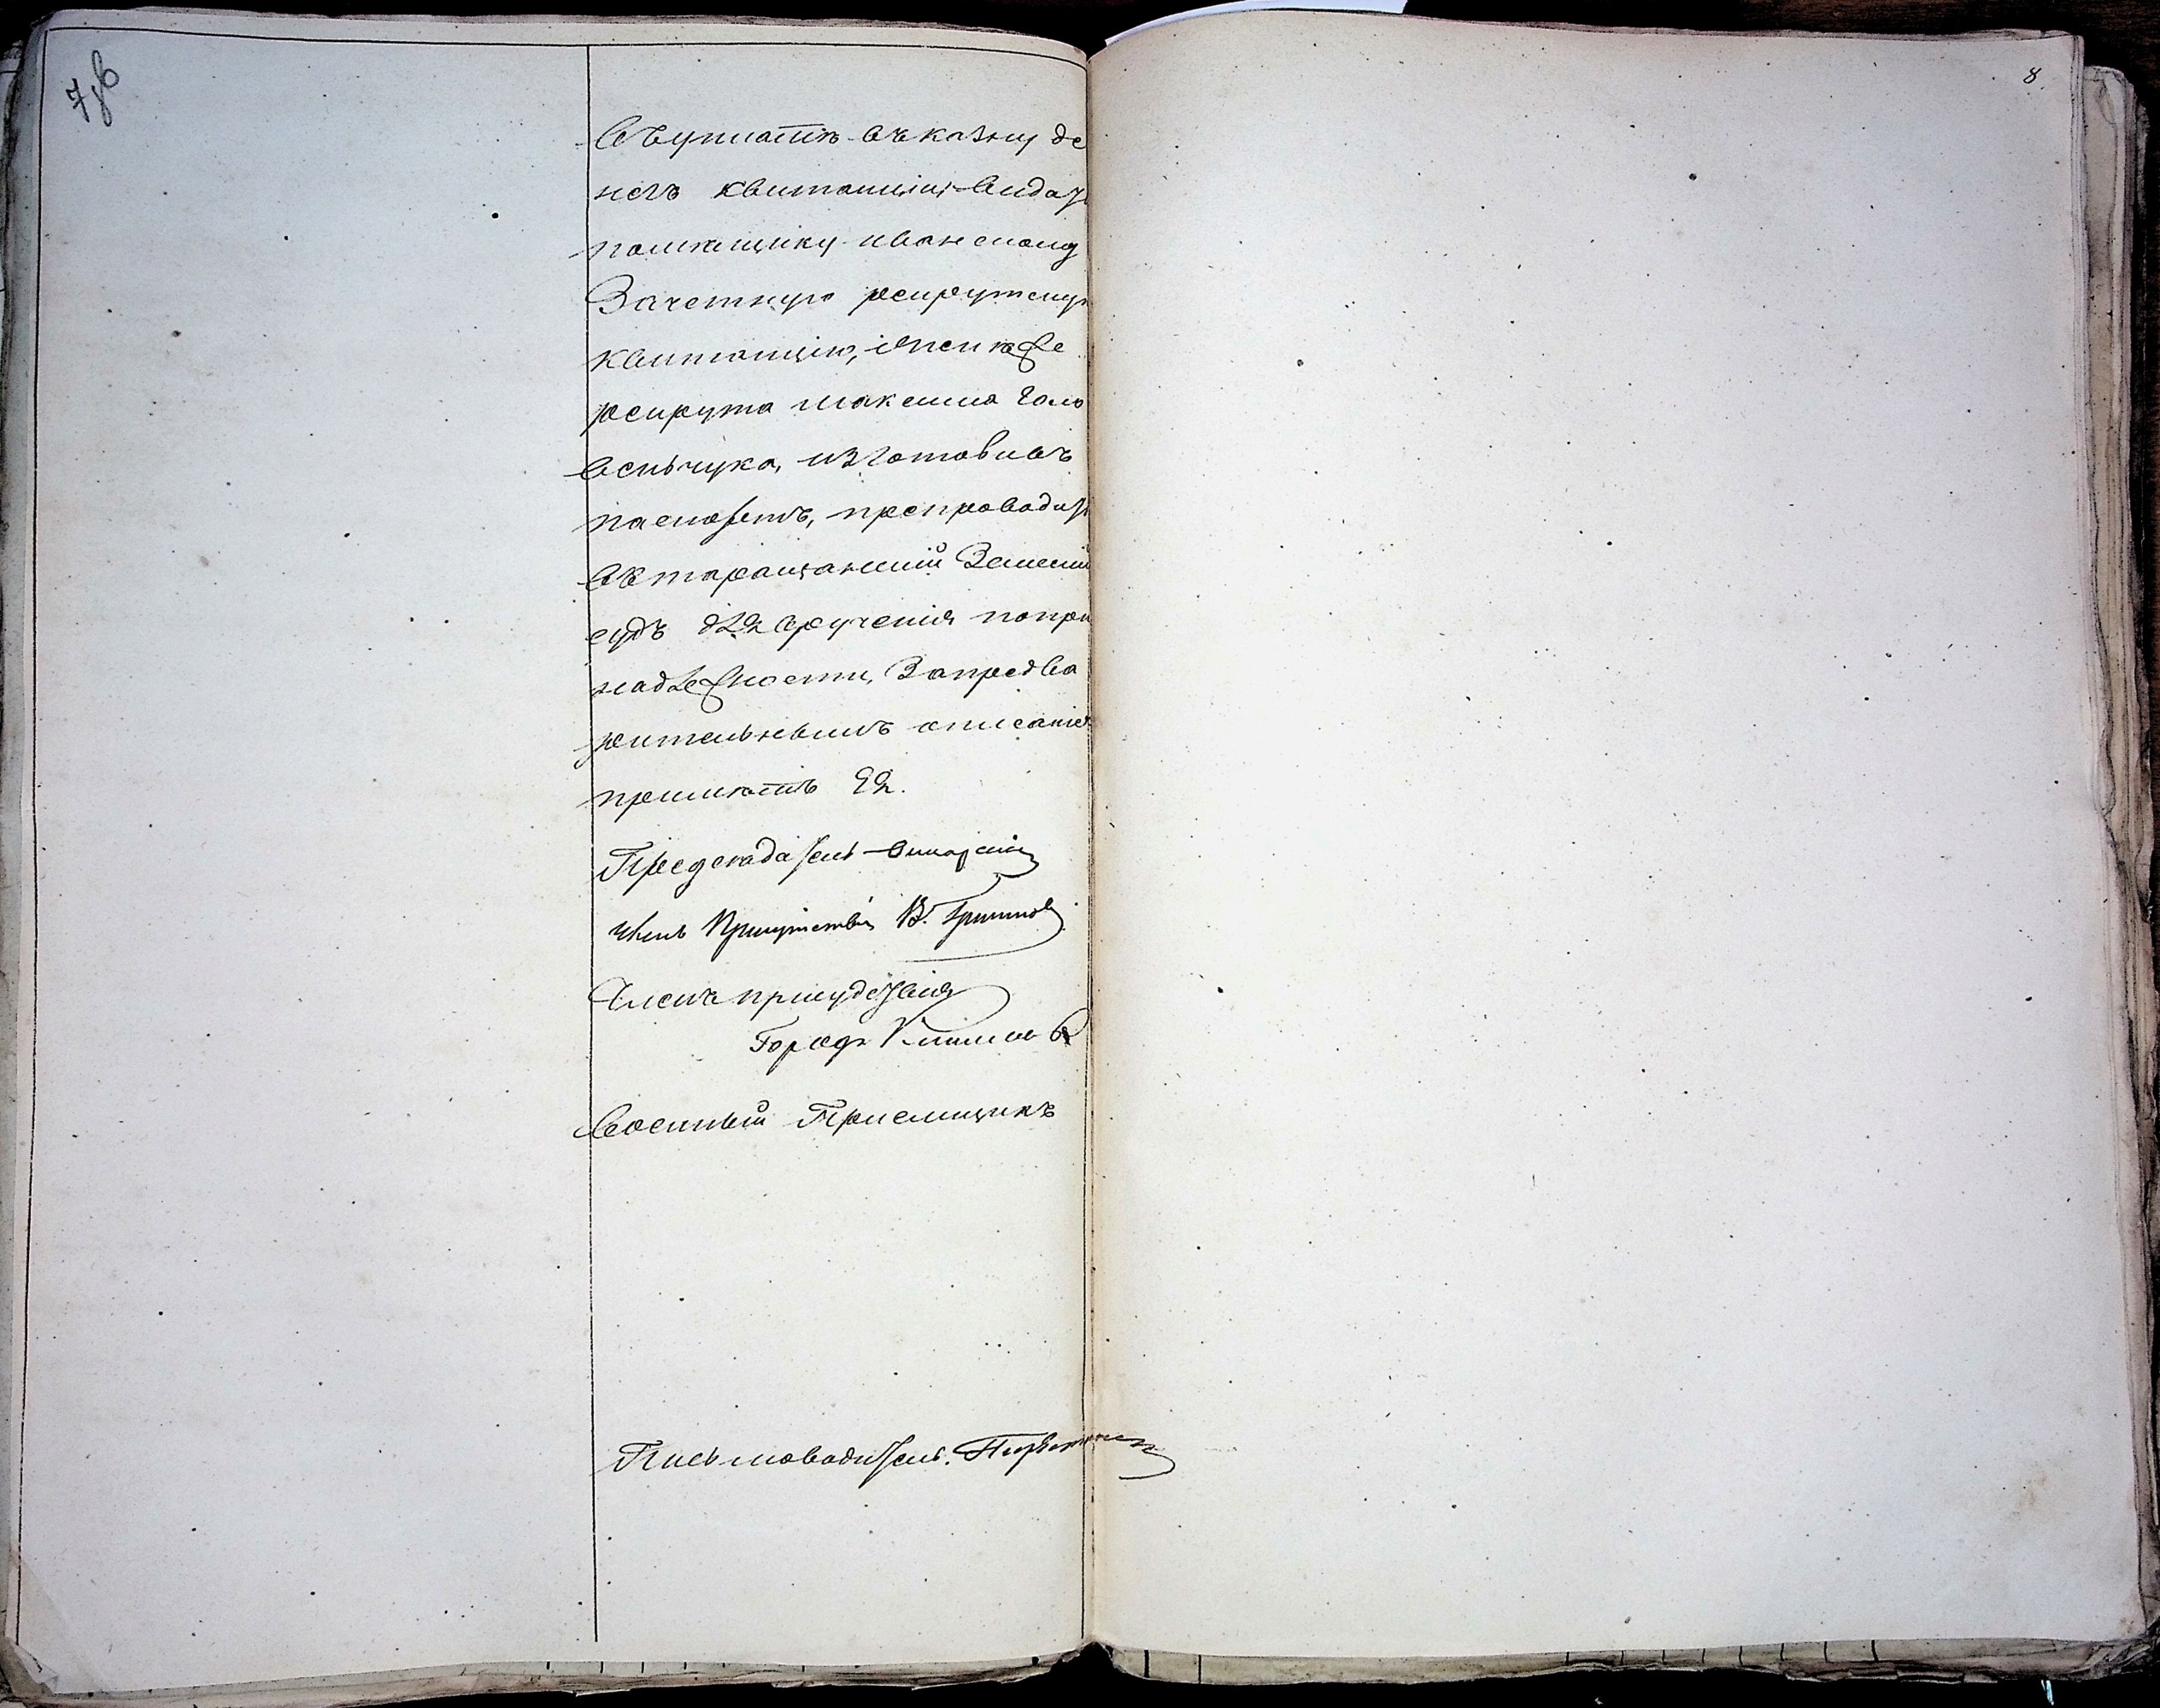 7 об
8
въ уплатѣ въ казну де
негъ квитанціи выдать
помѣщику иванскому
Зачетную рекрутскую
квитанцію, женѣ же
рекрута максима Голо
веньчука, изготовивъ
паспортъ, препроводить
въ таращанскій Земскій
судъ для вручения попри
надлежности, Запредва
рительнымъ описаніем
примѣтъ Ея.
Председатель
Членъ Присутствія В.
Членъ присудствія
Город
Военный Приемщикъ
Письмоводитель.